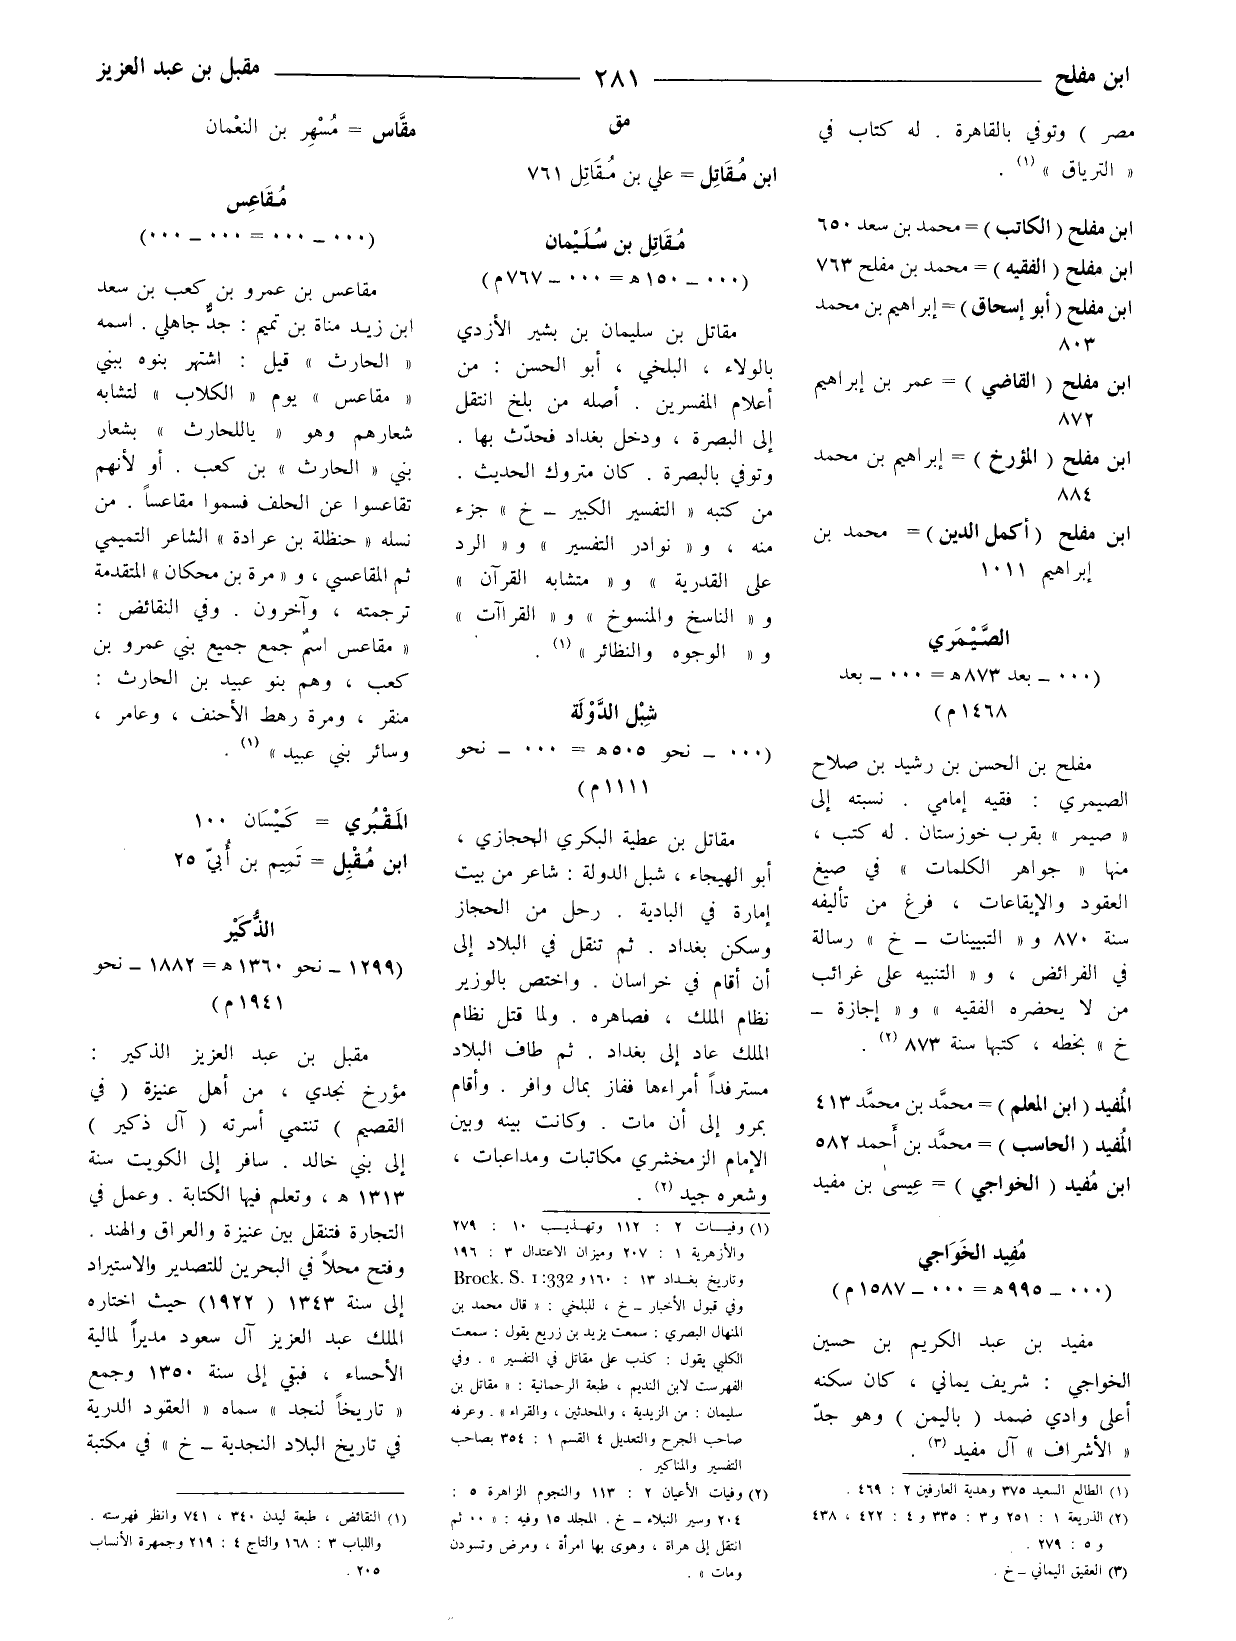 ابن مفلح ـــ ٢٨١ ـــ مقبل بن عبد العزيز
مصر ) وتوفي بالقاهرة . له كتاب في
« الترياق » (١) .
ابن مفلح ( الكاتب ) = محمد بن سعد ٦٥٠
ابن مفلح ( الفقيه ) = محمد بن مفلح ٧٦٣
ابن مفلح ( أبو إسحاق ) = إبراهيم بن محمد
٨٠٣
ابن مفلح ( القاضي ) = عمر بن إبراهيم
٨٧٢
ابن مفلح ( المؤرخ ) = إبراهيم بن محمد
٨٨٤
ابن مفلح ( أكمل الدين ) = محمد بن
إبراهيم ١٠١١
الصَّيْمَري
(٠٠٠ ــ بعد ٨٧٣هـ = ٠٠٠ ــ بعد
١٤٦٨م)
مفلح بن الحسن بن رشيد بن صلاح
الصيمري : فقيه إمامي . نسبته إلى
« صيمر » بقرب خوزستان . له كتب ،
منها « جواهر الكلمات » في صيغ
العقود والإيقاعات ، فرغ من تأليفه
سنة ٨٧٠ و « التبيينات ــ خ » رسالة
في الفرائض ، و « التنبيه على غرائب
من لا يحضره الفقيه » و « إجازة ــ
خ » بخطه ، كتبها سنة ٨٧٣ (٢) .
المُفيد ( ابن المعلم ) = محمَّد بن محمَّد ٤١٣
المُفيد ( الحاسب ) = محمَّد بن أَحمد ٥٨٢
ابن مُفيد ( الخواجي ) = عِيسىٰ بن مفيد
مُفِيد الخَوَاجي
(٠٠٠ ــ ٩٩٥هـ = ٠٠٠ ــ ١٥٨٧م)
مفيد بن عبد الكريم بن حسين
الخواجي : شريف يماني ، كان سكنه
أعلى وادي ضمد ( باليمن ) وهو جدّ
« الأشراف » آل مفيد (٣) .
(١) الطالع السعيد ٣٧٥ وهدية العارفين ٢ : ٤٦٩ .
(٢) الذريعة ١ : ٢٥١ و ٣ : ٣٣٥ و ٤ : ٤٢٢ ، ٤٣٨
و ٥ : ٢٧٩ .
(٣) العقيق اليماني ــ خ .
مق
ابن مُقَاتِل = علي بن مُقَاتِل ٧٦١
مُقَاتِل بن سُلَيْمان
(٠٠٠ ــ ١٥٠هـ = ٠٠٠ ــ ٧٦٧م)
مقاتل بن سليمان بن بشير الأزدي
بالولاء ، البلخي ، أبو الحسن : من
أعلام المفسرين . أصله من بلخ انتقل
إلى البصرة ، ودخل بغداد فحدّث بها .
وتوفي بالبصرة . كان متروك الحديث .
من كتبه « التفسير الكبير ــ خ » جزء
منه ، و « نوادر التفسير » و « الرد
على القدرية » و « متشابه القرآن »
و « الناسخ والمنسوخ » و « القراآت »
و « الوجوه والنظائر » (١) .
شِبْل الدَّوْلَة
(٠٠٠ ــ نحو ٥٠٥هـ = ٠٠٠ ــ نحو
١١١١م)
مقاتل بن عطية البكري الحجازي ،
أبو الهيجاء ، شبل الدولة : شاعر من بيت
إمارة في البادية . رحل من الحجاز
وسكن بغداد . ثم تنقل في البلاد إلى
أن أقام في خراسان . واختص بالوزير
نظام الملك ، فصاهره . ولما قتل نظام
الملك عاد إلى بغداد . ثم طاف البلاد
مسترفداً أمراءها ففاز بمال وافر . وأقام
بمرو إلى أن مات . وكانت بينه وبين
الإمام الزمخشري مكاتبات ومداعبات ،
وشعره جيد (٢) .
(١) وفيـات ٢ : ١١٢ وتهـذيـب ١٠ : ٢٧٩
والأزهرية ١ : ٢٠٧ وميزان الاعتدال ٣ : ١٩٦
وتاريخ بغـداد ١٣ : ١٦٠ و Brock. S. 1:332
وفي قبول الأخبار ــ خ ، للبلخي : « قال محمد بن
المنهال البصري : سمعت يزيد بن زريع يقول : سمعت
الكلبي يقول : كذب على مقاتل في التفسير » . وفي
الفهرست لابن النديم ، طبعة الرحمانية : « مقاتل بن
سليمان : من الزيدية ، والمحدثين ، والقراء » . وعرفه
صاحب الجرح والتعديل ٤ القسم ١ : ٣٥٤ بصاحب
التفسير والمناكير .
(٢) وفيات الأعيان ٢ : ١١٣ والنجوم الزاهرة ٥ :
٢٠٤ وسير النبلاء ــ خ . المجلد ١٥ وفيه : « ٠٠ ثم
انتقل إلى هراة ، وهوى بها امرأة ، ومرض وتسودن
ومات » .
مقَّاس = مُسْهِر بن النعْمان
مُقَاعِس
(٠٠٠ ــ ٠٠٠ = ٠٠٠ ــ ٠٠٠)
مقاعس بن عمرو بن كعب بن سعد
ابن زيـد مناة بن تميم : جدٌّ جاهلي . اسمه
« الحارث » قيل : اشتهر بنوه ببني
« مقاعس » يوم « الكلاب » لتشابه
شعارهم وهو « ياللحارث » بشعار
بني « الحارث » بن كعب . أو لأنهم
تقاعسوا عن الحلف فسموا مقاعساً . من
نسله « حنظلة بن عرادة » الشاعر التميمي
ثم المقاعسي ، و « مرة بن محكان » المتقدمة
ترجمته ، وآخرون . وفي النقائض :
« مقاعس اسمٌ جمع جميع بني عمرو بن
كعب ، وهم بنو عبيد بن الحارث :
منقر ، ومرة رهط الأحنف ، وعامر ،
وسائر بني عبيد » (١) .
المَقْبُري = كَيْسَان ١٠٠
ابن مُقْبِل = تَمِيم بن أُبيّ ٢٥
الذُّكَيْر
(١٢٩٩ ــ نحو ١٣٦٠هـ = ١٨٨٢ ــ نحو
١٩٤١م)
مقبل بن عبد العزيز الذكير :
مؤرخ نجدي ، من أهل عنيزة ( في
القصيم ) تنتمي أسرته ( آل ذكير )
إلى بني خالد . سافر إلى الكويت سنة
١٣١٣ هـ ، وتعلم فيها الكتابة . وعمل في
التجارة فتنقل بين عنيزة والعراق والهند .
وفتح محلاً في البحرين للتصدير والاستيراد
إلى سنة ١٣٤٣ ( ١٩٢٢) حيث اختاره
الملك عبد العزيز آل سعود مديراً لمالية
الأحساء ، فبقي إلى سنة ١٣٥٠ وجمع
« تاريخاً لنجد » سماه « العقود الدرية
في تاريخ البلاد النجدية ــ خ » في مكتبة
(١) النقائض ، طبعة ليدن ٣٤٠ ، ٧٤١ وانظر فهرسته .
واللباب ٣ : ١٦٨ والتاج ٤ : ٢١٩ وجمهرة الأنساب
٢٠٥ .